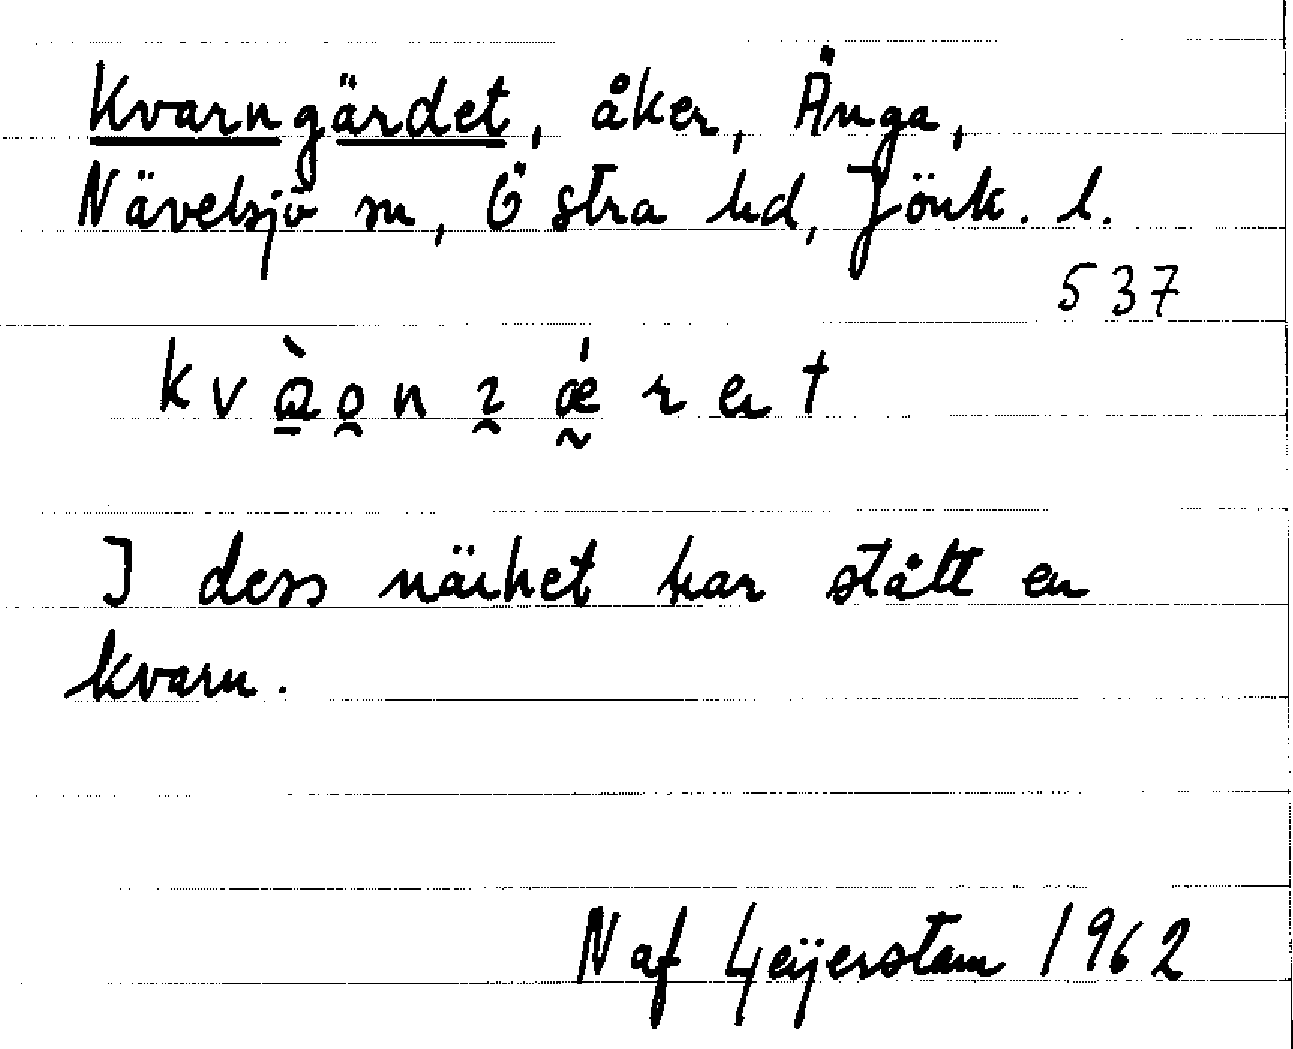 Kvarngärdet, åker, Änga,
Nävelsjö sn, Östra hd, Jönk. l.
537
kvàonɿǽret
I dess närhet har stått en
kvarn.
N af Geijerstam 1962